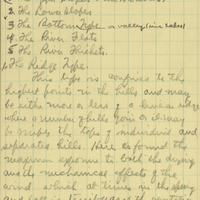 2. The Lower Slopes
3. The Bottom Type or valley
4. The River Flats
5. The River Thickets.
1. The Ridge Type:
This type is confined to the
highest points in the hills and may
be either more or less of a
where a number of hills join or it may
be simply the tops of individual and
separated hills. Here are found the
maximum exposure to both the drying
and the mechanical effects of the
wind, which at times in the spring
and fall is